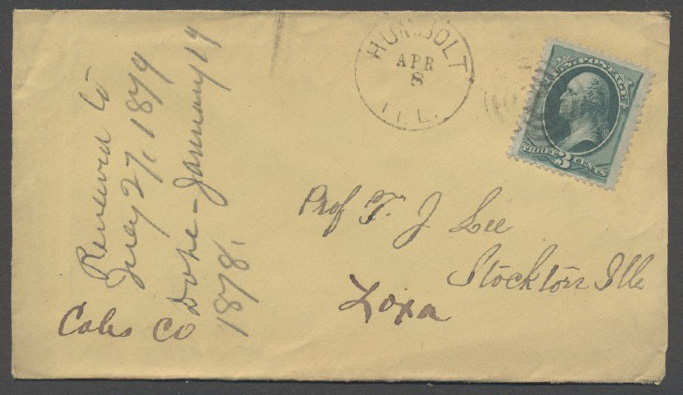 HUMBOLT
APR
8
ILL.
U.S. POSTAGE
THREE 3 CENTS
Prof T. J Lee
Stockton Ills
Loxa
Coles Co
Renewed to
July 27, 1879
Done - January 19
1878.